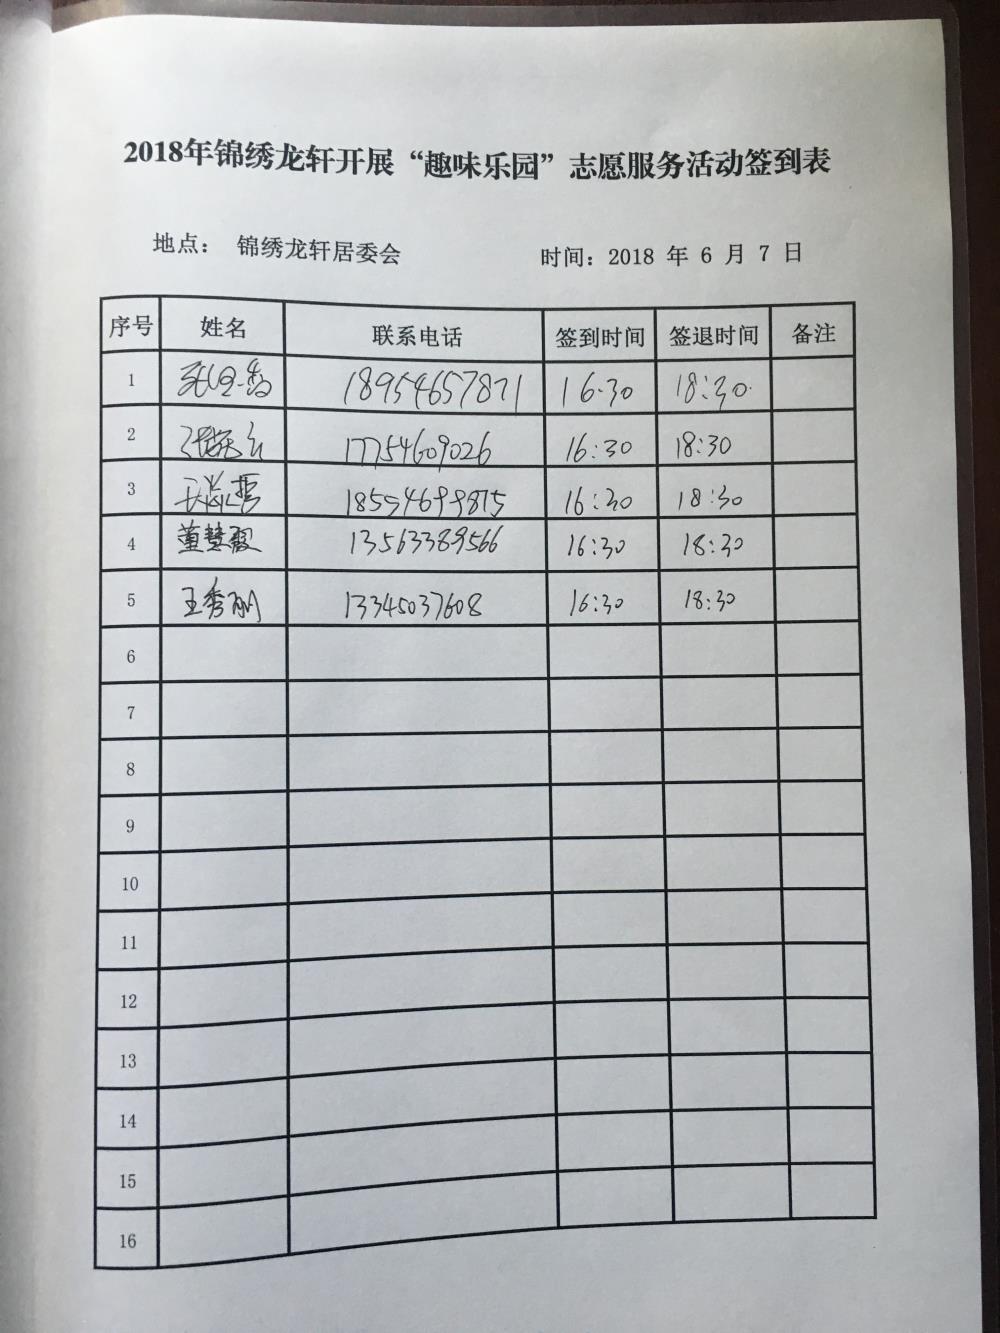 2018年锦绣龙轩开展“趣味乐园”志愿服务活动签到表
地点： 锦绣龙轩居委会 时间：2018 年 6 月 7 日
序号 姓名 联系电话 签到时间 签退时间 备注
1 18954657871 16:30 18:30
2 17754609026 16:30 18:30
3 18554699815 16:30 18:30
4 董慧霞 13563389566 16:30 18:30
5 王秀刚 13345037608 16:30 18:30
6
7
8
9
10
11
12
13
14
15
16